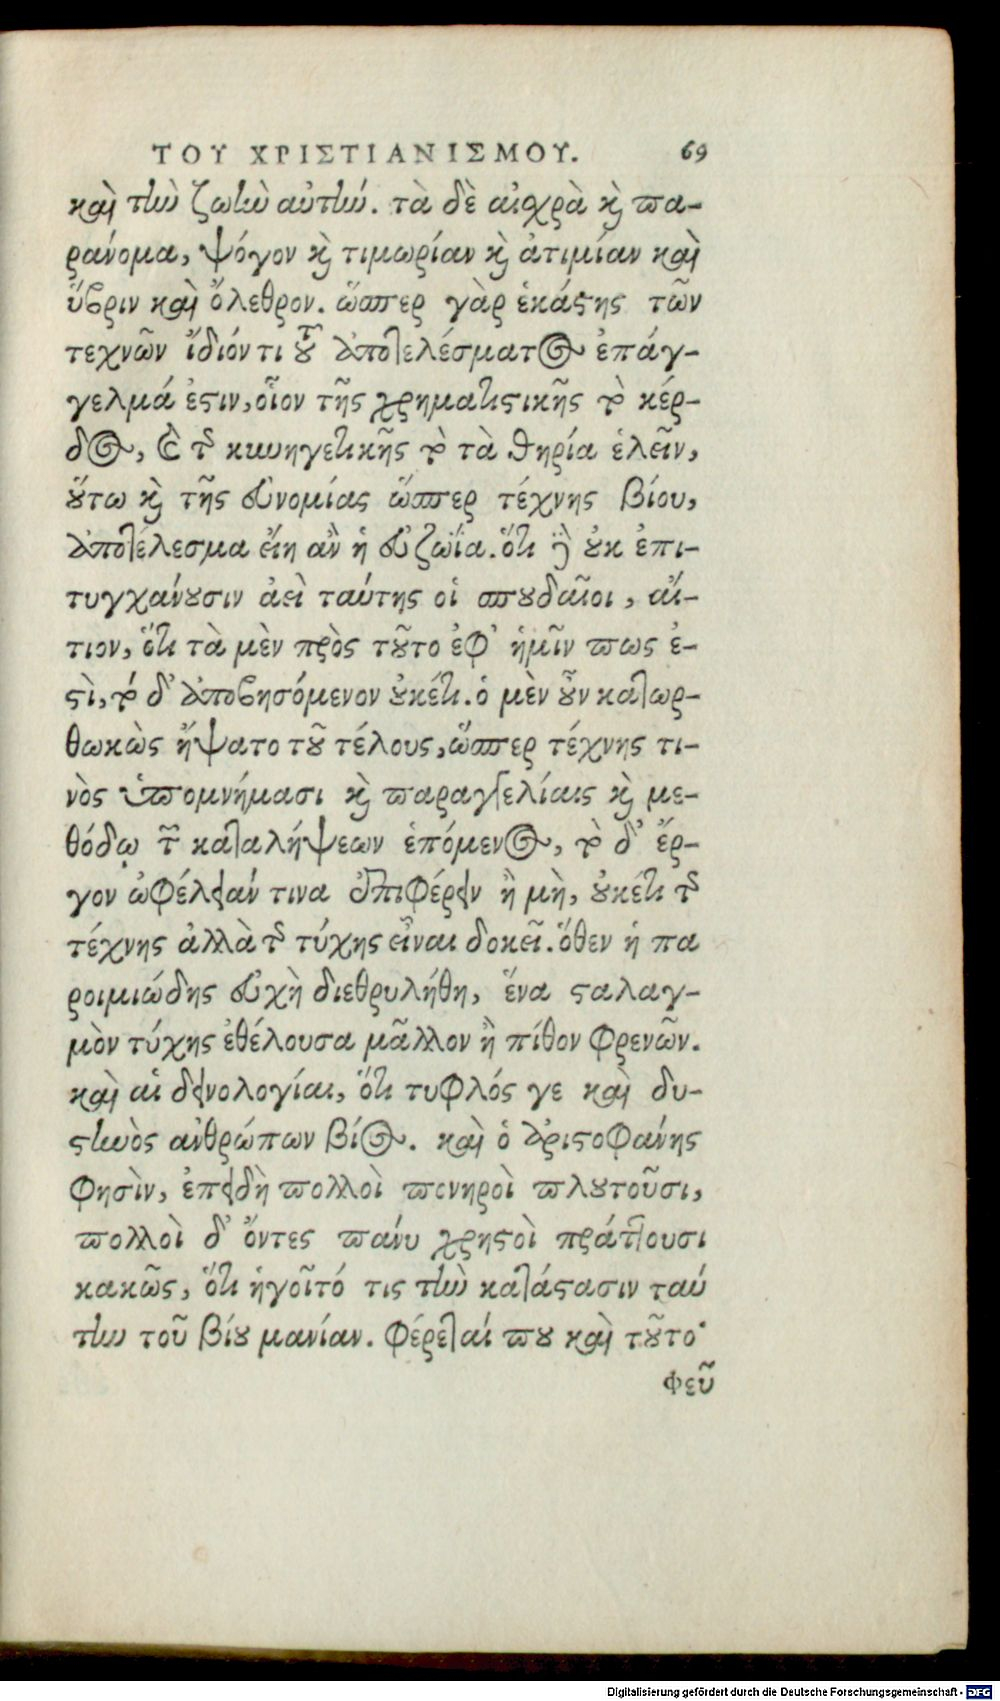 ΤΟΥ ΧΡΙΣΤΙΑΝΙΣΜΟΥ. 69
καὶ τὴν ζωὴν αὐτήν. τὰ δὲ αἰσχρὰ καὶ πα-
ράνομα, ψόγον καὶ τιμωρίαν καὶ ἀτιμίαν καὶ
ὕβριν καὶ ὄλεθρον. ὥσπερ γὰρ ἑκάστης τῶν
τεχνῶν ἴδιόν τι τοῦ ἀποτελέσματος ἐπάγ-
γελμά ἐστιν, οἷον τῆς χρηματιστικῆς τὸ κέρ-
δος, καὶ τῆς κυνηγετικῆς τὸ τὰ θηρία ἑλεῖν,
οὕτω καὶ τῆς εὐνομίας ὥσπερ τέχνης βίου,
ἀποτέλεσμα εἴη ἂν ἡ εὐζωΐα. ὅτι δὲ οὐκ ἐπι-
τυγχάνουσιν ἀεὶ ταύτης οἱ σπουδαῖοι, αἴ-
τιον, ὅτι τὰ μὲν πρὸς τοῦτο ἐφ' ἡμῖν πως ἐ-
στὶ, τὸ δ' ἀποβησόμενον οὐκέτι. ὁ μὲν οὖν κατωρ-
θωκὼς ἥψατο τοῦ τέλους, ὥσπερ τέχνης τι-
νὸς ὑπομνήμασι καὶ παραγγελίαις καὶ με-
θόδῳ τῶν καταλήψεων ἑπόμενος, τὸ δ' ἔρ-
γον ὠφέλειάν τινα ἐπιφέρειν ἢ μὴ, οὐκέτι τῆς
τέχνης ἀλλὰ τῆς τύχης εἶναι δοκεῖ. ὅθεν ἡ πα
ροιμιώδης εὐχὴ διεθρυλήθη, ἕνα σταλαγ-
μὸν τύχης ἐθέλουσα μᾶλλον ἢ πίθον φρενῶν.
καὶ αἱ δεινολογίαι, ὅτι τυφλός γε καὶ δυ-
στηνὸς ἀνθρώπων βίος. καὶ ὁ ἀριστοφάνης
φησὶν, ἐπειδὴ πολλοὶ πονηροὶ πλουτοῦσι,
πολλοὶ δ' ὄντες πάνυ χρηστοὶ πράττουσι
κακῶς, ὅτι ἡγοῖτό τις τὴν κατάστασιν ταύ
την τοῦ βίου μανίαν. φέρεταί που καὶ τοῦτο·
φεῦ
Digitalisierung gefördert durch die Deutsche Forschungsgemeinschaft - DFG